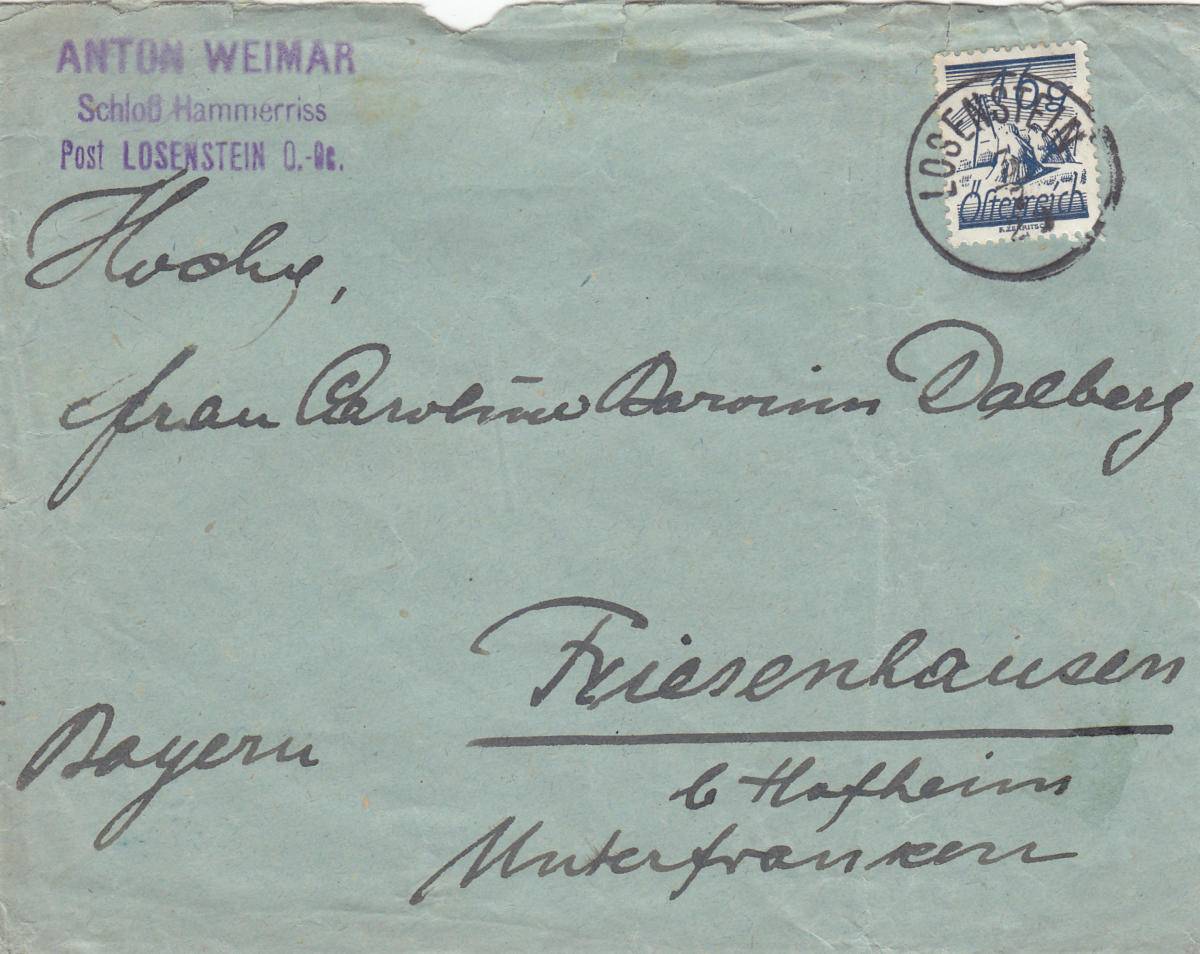 ANTON WEIMAR
Schloß Hammerriss
Post LOSENSTEIN O.-Oe.
16g
Österreich
LOSENSTEIN
Hochg,
frau Caroline Baronin Dalberg
Friesenhausen
b Hofheim
Unterfranken
Bayern